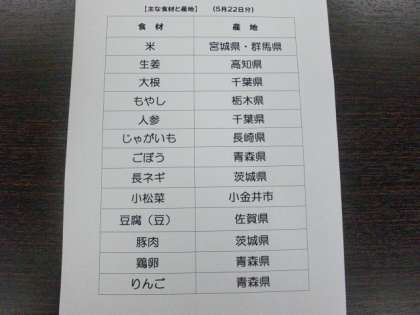 【主な食材と産地】 (5月22日分)
食 材 産 地
米 宮城県・群馬県
生姜 高知県
大根 千葉県
もやし 栃木県
人参 千葉県
じゃがいも 長崎県
ごぼう 青森県
長ネギ 茨城県
小松菜 小金井市
豆腐（豆） 佐賀県
豚肉 茨城県
鶏卵 青森県
りんご 青森県